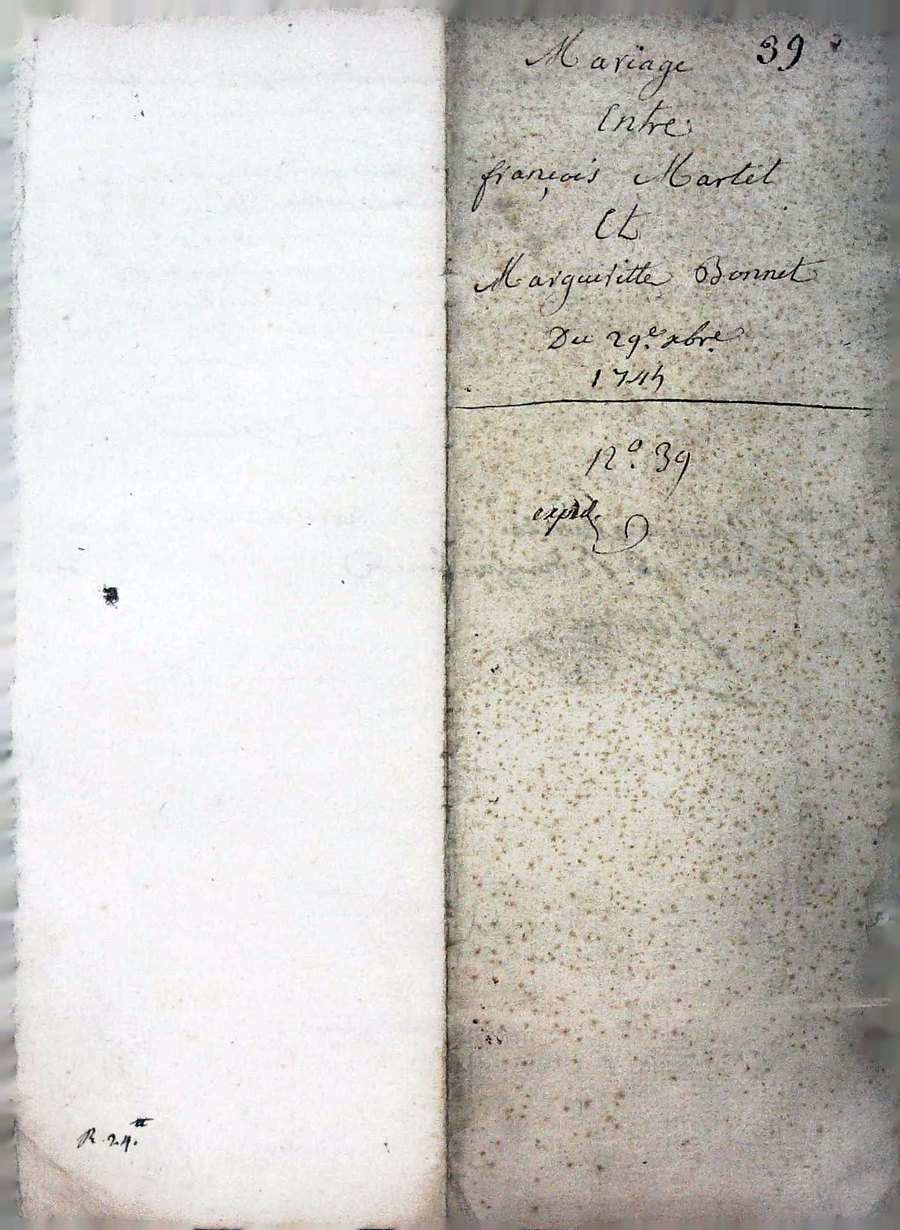 39
Mariage
Entre
françois Martet
Et
Margueritte Bonnet
Du 29.e xbre.
1744
N.o 39
expéd.
R 24.tt